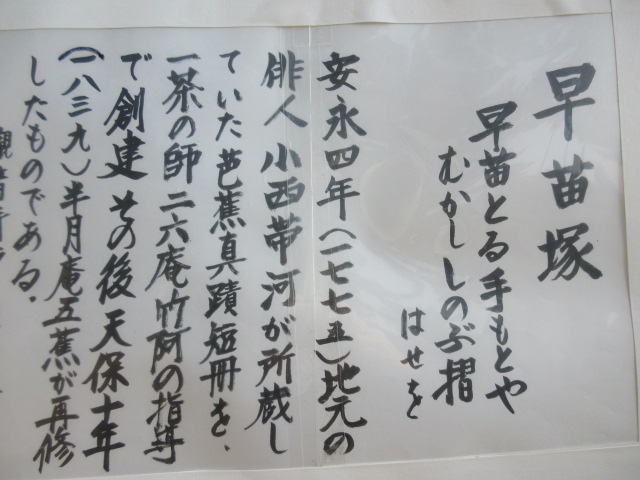 早苗塚
早苗とる手もとや
むかししのぶ摺
はせを
安永四年(一七七五)地元の
俳人小西帯河が所蔵し
ていた芭蕉真蹟短冊を、
一茶の師二六庵竹阿の指導
で創建その後天保十年
(一八三九)半月庵五蕉が再修
したものである.